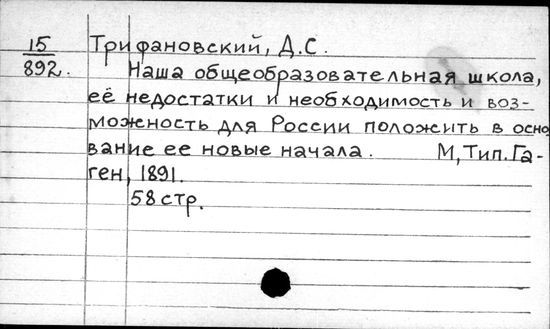 15
892.
Трифановский, Д.С.
Наша общеобразовательная школа,
её недостатки и необходимость и воз-
можность для России положить в осно
вание ее новые начала. М, Тип. Га-
ген, 1891.
58 стр.